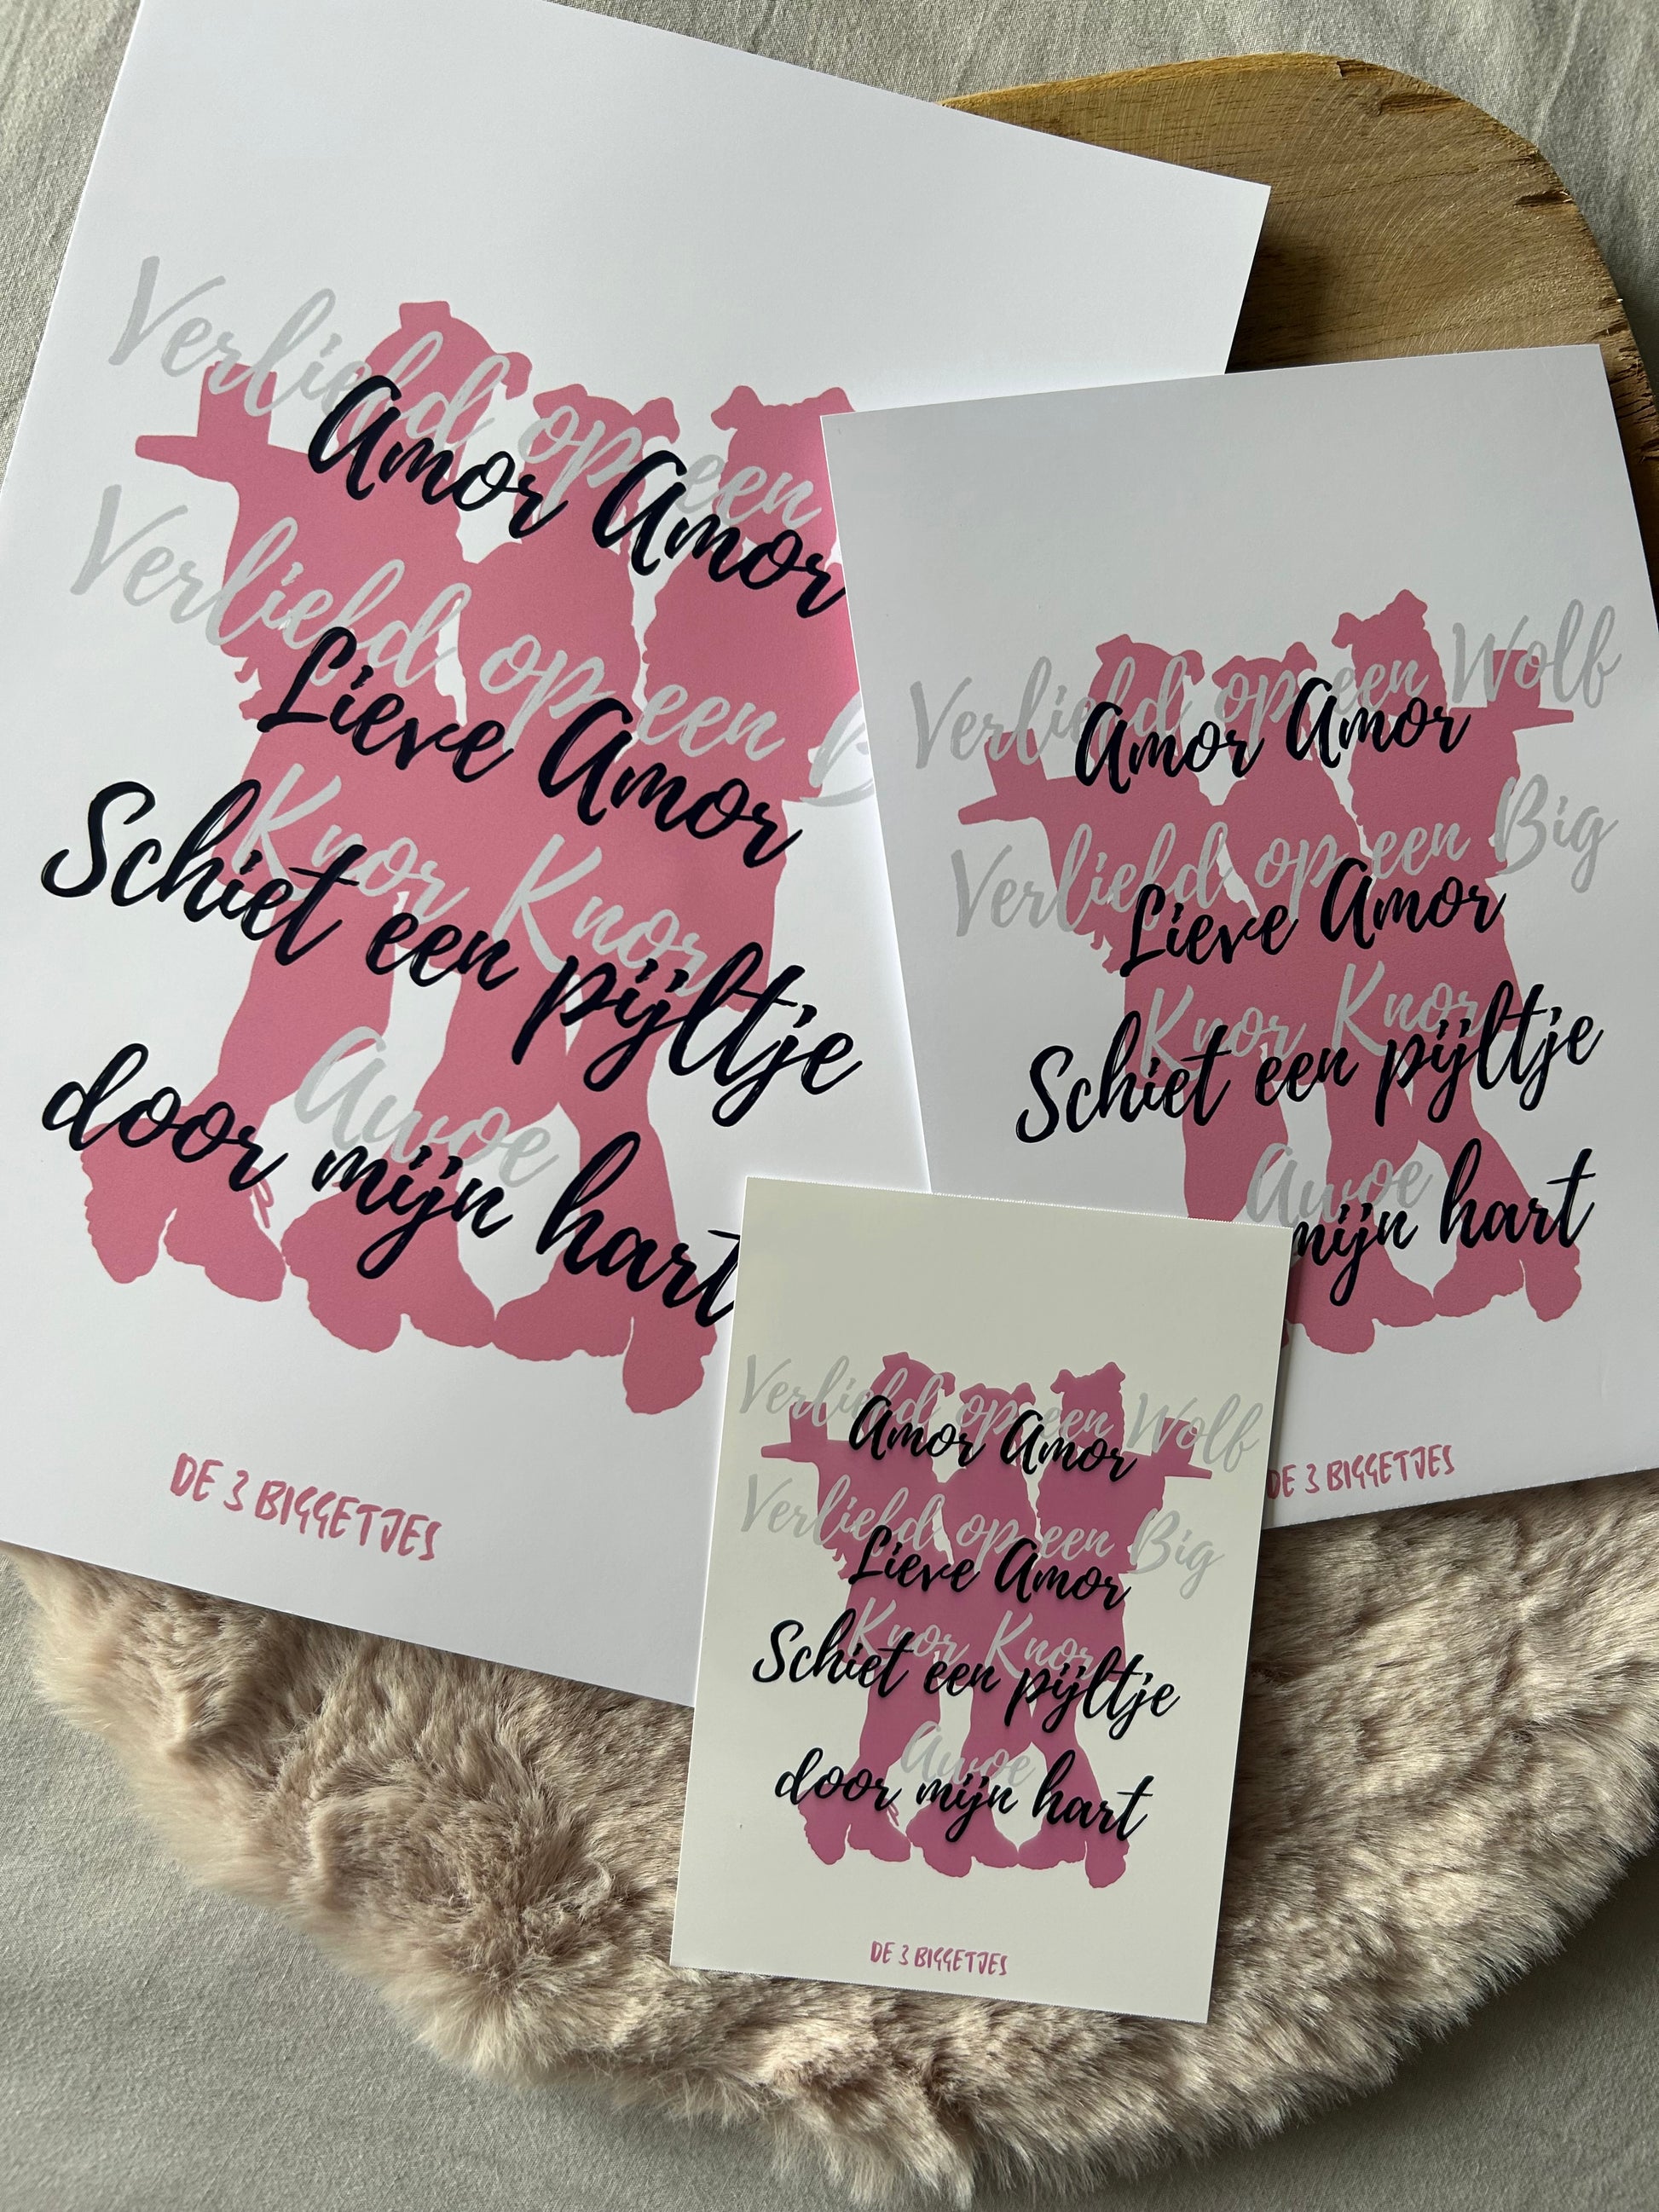 Verliefd op een
Amor Amor
Verliefd op een B
Lieve Amor
Knor Knor
Schiet een pijltje
Awoe
door mijn hart
DE 3 BIGGETJES
Verliefd op een Wolf
Amor Amor
Verliefd op een Big
Lieve Amor
Knor Knor
Schiet een pijltje
Awoe
mijn hart
DE 3 BIGGETJES
Verliefd op een Wolf
Amor Amor
Verliefd op een Big
Lieve Amor
Knor Knor
Schiet een pijltje
Awoe
door mijn hart
DE 3 BIGGETJES